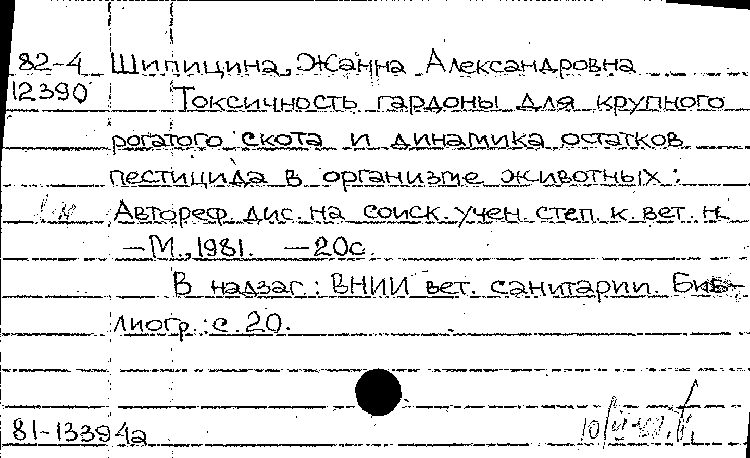 82-4 Шипицина, Жанна Александровна
12390 Токсичность гардоны для крупного
рогатого скота и динамика остатков
пестицида в организме животных:
Автореф. дис. на соиск. учен. степ. к. вет. н.
— М., 1981. — 20с.
В надзаг.: ВНИИ вет. санитарии. Биб-
лиогр.: с. 20.
81-13394а